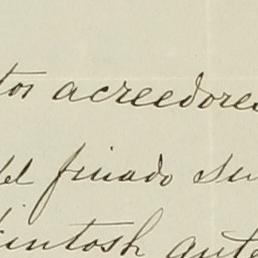 tos acreedores
del finado su
intosh ante